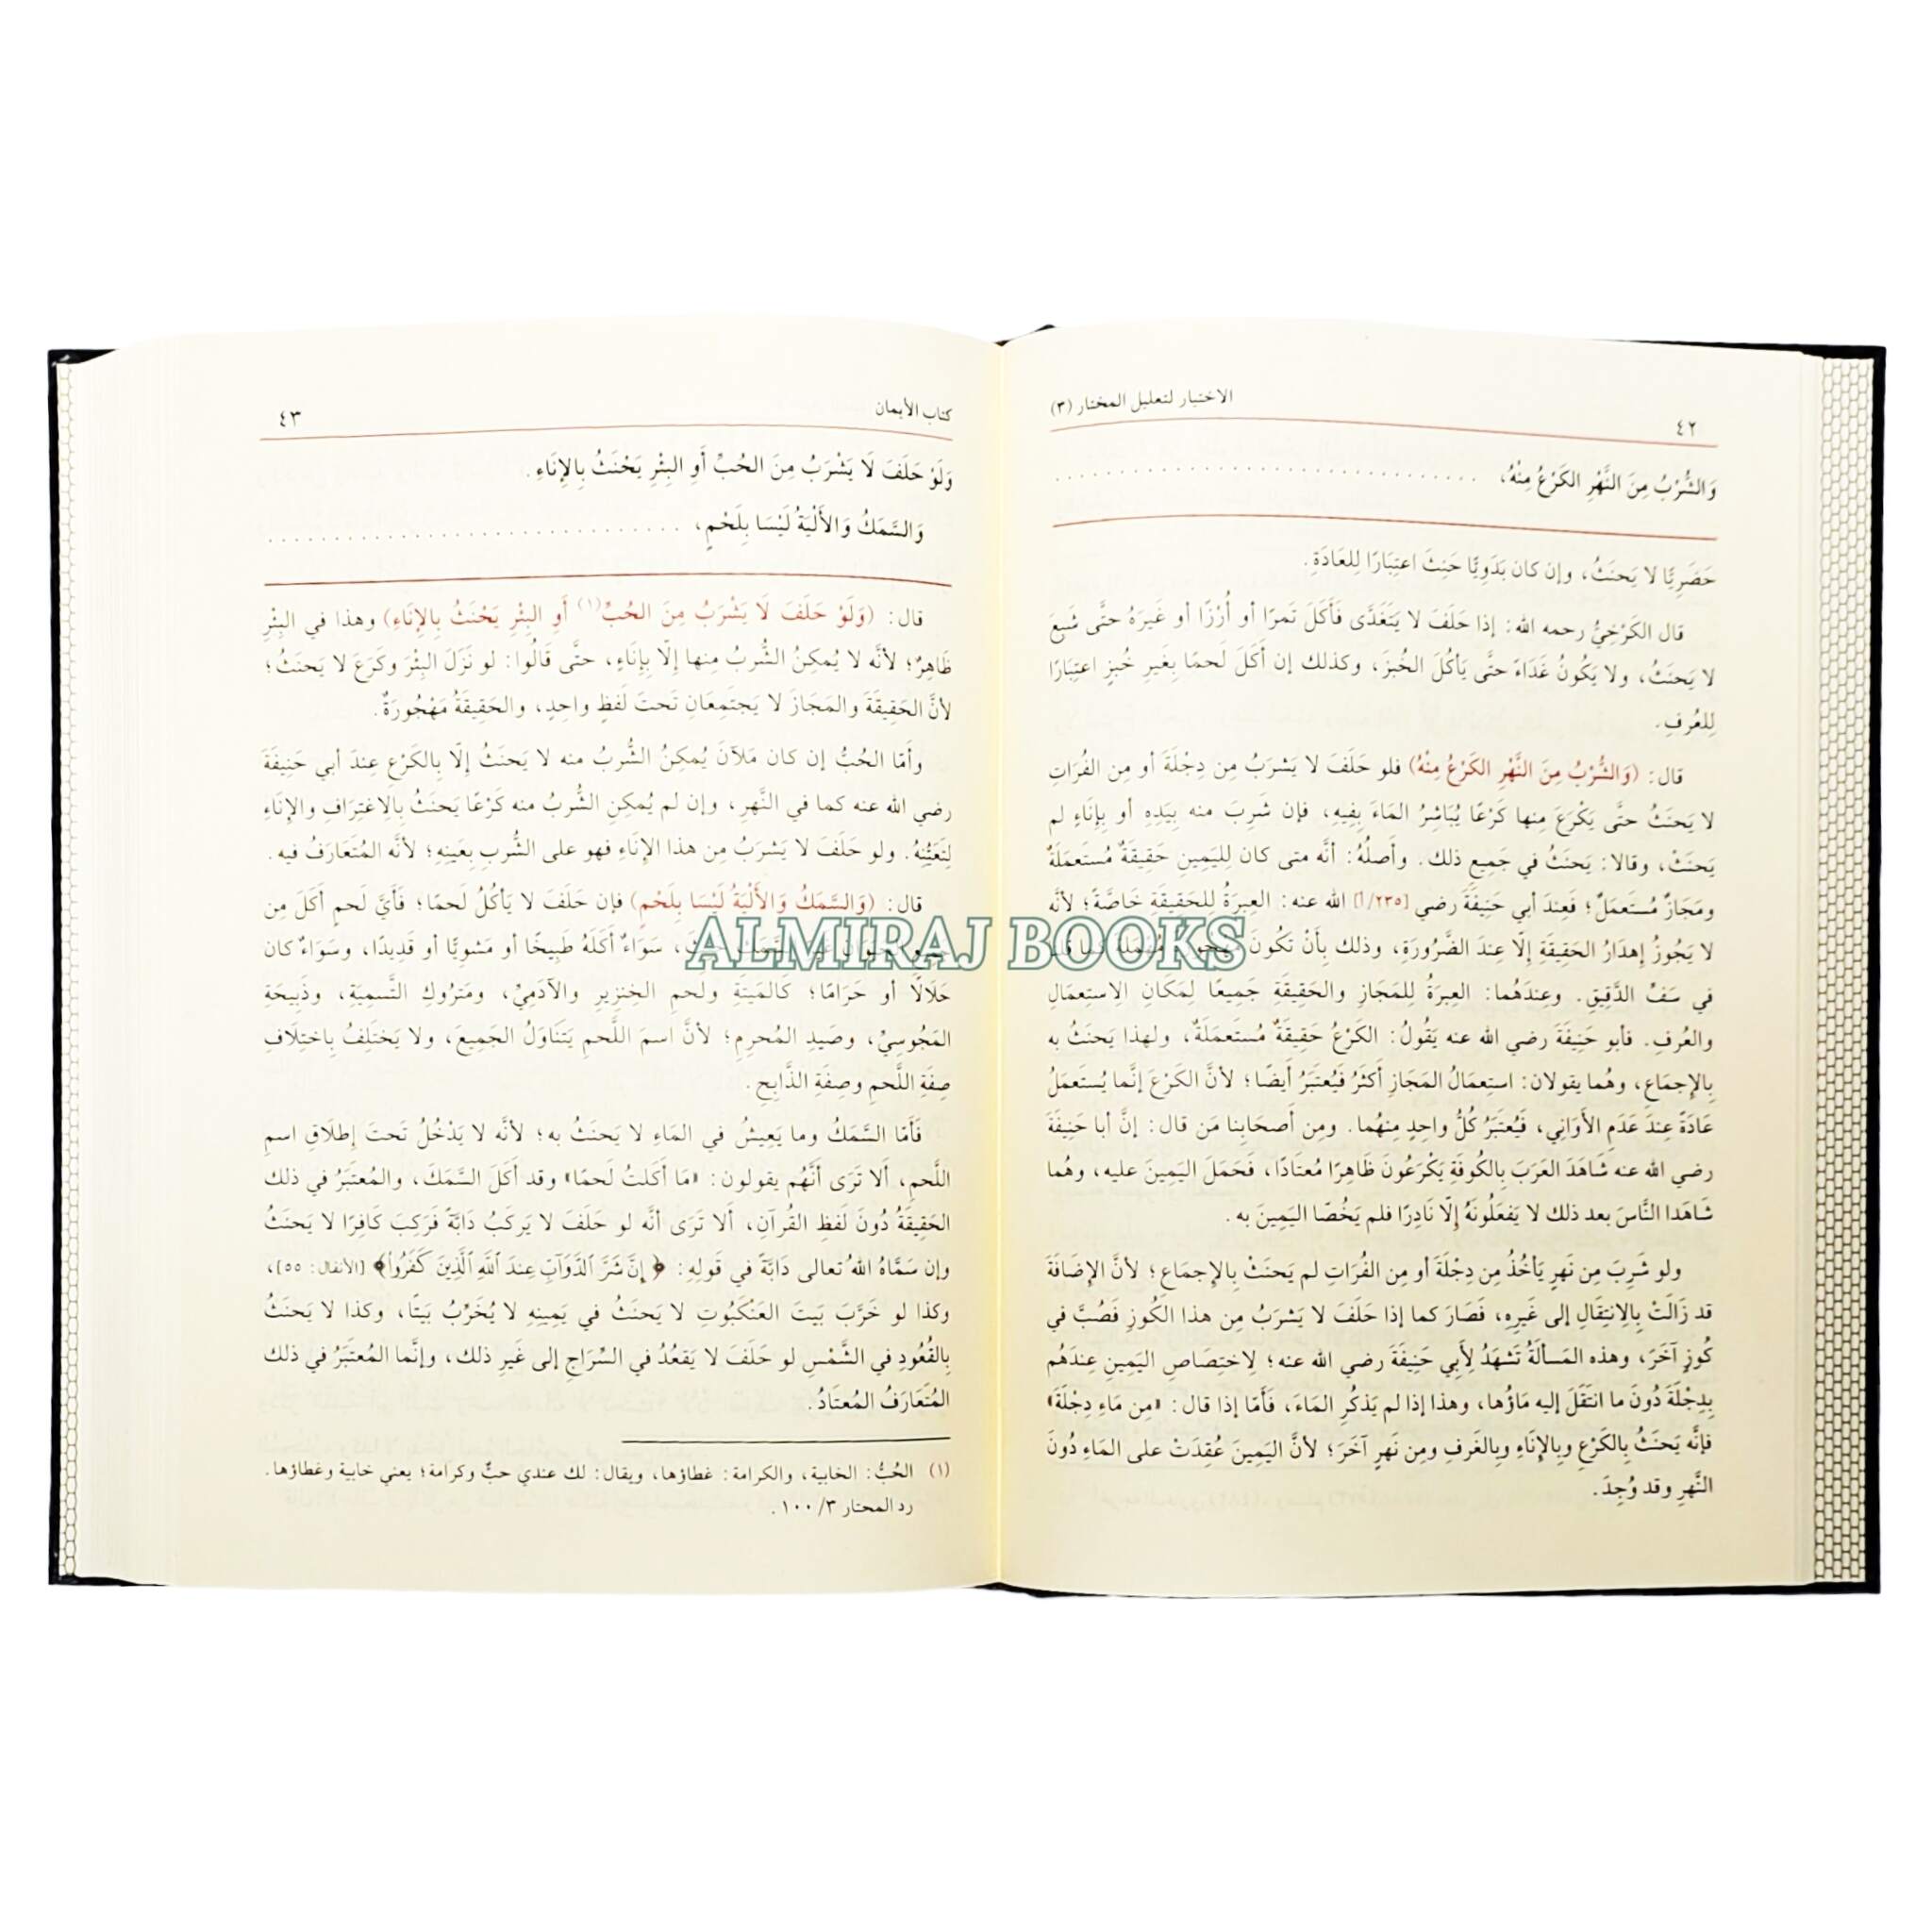 ٤٢
الاختيار لتعليل المختار (٣)
وَالشُّرْبُ مِنَ النَّهْرِ الكَرْعُ مِنْهُ، . . . . . . . . . . . . . . . . . . . . . . . . . . . . .
حَضَرِيًّا لا يَحنَثُ، وإن كان بَدَوِيًّا حَنِثَ اعتِبَارًا لِلعَادَةِ.
قال الكَرْخِيُّ رحمه الله: إذا حَلَفَ لا يَتَغَدَّى فَأَكَلَ تَمرًا أو أُرْزًا أو غَيرَهُ حتَّى شَبِعَ
لا يَحنَثُ، ولا يَكُونُ غَدَاءً حتَّى يَأكُلَ الخُبزَ، وكذلك إن أكَلَ لَحمًا بِغَيرِ خُبزٍ اعتِبَارًا
لِلعُرفِ.
قال: (وَالشُّرْبُ مِنَ النَّهْرِ الكَرْعُ مِنْهُ) فلو حَلَفَ لا يَشرَبُ مِن دِجْلَةَ أو مِن الفُرَاتِ
لا يَحنَثُ حتَّى يَكْرَعَ مِنها كَرْعًا يُبَاشِرُ المَاءَ بِفِيهِ، فإن شَرِبَ منه بِيَدِهِ أو بِإنَاءٍ لم
يَحنَثْ، وقالا: يَحنَثُ في جَمِيعِ ذلك. وأصلُهُ: أنَّه متى كان لِليَمِينِ حَقِيقَةٌ مُستَعمَلَةٌ
ومَجَازٌ مُستَعمَلٌ؛ فَعِندَ أبي حَنِيفَةَ رضي [٢٣٥/أ] الله عنه: العِبرَةُ لِلحَقِيقَةِ خَاصَّةً؛ لأنَّه
لا يَجُوزُ إهدَارُ الحَقِيقَةِ إلّا عِندَ الضَّرُورَةِ، وذلك بِأَنْ تَكُونَ
في سَفِّ الدَّقِيقِ. وعِندَهُما: العِبرَةُ لِلمَجَازِ والحَقِيقَةِ جَمِيعًا لِمَكَانِ الِاستِعمَالِ
والعُرفِ. فأبو حَنِيفَةَ رضي الله عنه يَقُولُ: الكَرْعُ حَقِيقَةٌ مُستَعمَلَةٌ، ولهذا يَحنَثُ به
بِالإجمَاعِ، وهُما يقولان: استِعمَالُ المَجَازِ أَكثَرُ فَيُعتَبَرُ أيضًا؛ لأنَّ الكَرْعَ إنَّما يُستَعمَلُ
عَادَةً عِندَ عَدَمِ الأَوَانِي، فَيُعتَبَرُ كُلُّ واحِدٍ مِنهُما. ومِن أَصحَابِنا مَن قال: إنَّ أبا حَنِيفَةَ
رضي الله عنه شَاهَدَ العَرَبَ بِالكُوفَةِ يَكْرَعُونَ ظَاهِرًا مُعتَادًا، فَحَمَلَ اليَمِينَ عليه، وهُما
شَاهَدا النَّاسَ بعد ذلك لا يَفعَلُونَهُ إلّا نَادِرًا فلم يَخُصّا اليَمِينَ به.
ولو شَرِبَ مِن نَهرٍ يَأخُذُ مِن دِجْلَةَ أو مِن الفُرَاتِ لم يَحنَثْ بِالإجمَاعِ؛ لأنَّ الإضَافَةَ
قد زَالَتْ بِالِانتِقَالِ إلى غَيرِهِ، فَصَارَ كما إذا حَلَفَ لا يَشرَبُ مِن هذا الكُوزِ فَصُبَّ في
كُوزٍ آخَرَ، وهذه المَسألَةُ تَشهَدُ لِأَبِي حَنِيفَةَ رضي الله عنه؛ لِاختِصَاصِ اليَمِينِ عِندَهُم
بِدِجْلَةَ دُونَ ما انتَقَلَ إليه مَاؤُها، وهذا إذا لم يَذكُرِ المَاءَ، فَأَمّا إذا قال: «مِن مَاءِ دِجْلَةَ»
فإنَّه يَحنَثُ بِالكَرْعِ وبِالإنَاءِ وبِالغَرفِ ومِن نَهرٍ آخَرَ؛ لأنَّ اليَمِينَ عُقِدَتْ على المَاءِ دُونَ
النَّهرِ وقد وُجِدَ.
كتاب الأيمان
٤٣
وَلَوْ حَلَفَ لَا يَشْرَبُ مِنَ الحُبِّ أَوِ البِئْرِ يَحْنَثُ بِالإِنَاءِ.
وَالسَّمَكُ وَالأَلْيَةُ لَيْسَا بِلَحْمٍ، . . . . . . . . . . . . . . . . . . . . . . . . . . . . .
قال: (وَلَوْ حَلَفَ لَا يَشْرَبُ مِنَ الحُبِّ(١) أَوِ البِئْرِ يَحْنَثُ بِالإِنَاءِ) وهذا في البِئْرِ
ظَاهِرٌ؛ لأنَّه لا يُمكِنُ الشُّربُ مِنها إلّا بِإنَاءٍ، حتَّى قَالُوا: لو نَزَلَ البِئْرَ وكَرَعَ لا يَحنَثُ؛
لأنَّ الحَقِيقَةَ والمَجَازَ لا يَجتَمِعَانِ تَحتَ لَفظٍ واحِدٍ، والحَقِيقَةُ مَهْجُورَةٌ.
وأَمّا الحُبُّ إن كان مَلآنَ يُمكِنُ الشُّربُ منه لا يَحنَثُ إلّا بِالكَرْعِ عِندَ أبي حَنِيفَةَ
رضي الله عنه كما في النَّهرِ، وإن لم يُمكِنِ الشُّربُ منه كَرْعًا يَحنَثُ بِالِاغتِرَافِ والإنَاءِ
لِتَعَيُّنِهِ. ولو حَلَفَ لا يَشرَبُ مِن هذا الإنَاءِ فهو على الشُّربِ بِعَينِهِ؛ لأنَّه المُتَعَارَفُ فيه.
قال: (وَالسَّمَكُ وَالأَلْيَةُ لَيْسَا بِلَحْمٍ) فإن حَلَفَ لا يَأكُلُ لَحمًا؛ فَأَيَّ لَحمٍ أَكَلَ مِن
سَوَاءٌ أَكَلَهُ طَبِيخًا أو مَشوِيًّا أو قَدِيدًا، وسَوَاءٌ كان
حَلَالًا أو حَرَامًا؛ كَالمَيتَةِ ولَحمِ الخِنزِيرِ والآدَمِيِّ، ومَترُوكِ التَّسمِيَةِ، وذَبِيحَةِ
المَجُوسِيِّ، وصَيدِ المُحرِمِ؛ لأنَّ اسمَ اللَّحمِ يَتَنَاوَلُ الجَمِيعَ، ولا يَختَلِفُ بِاختِلَافِ
صِفَةِ اللَّحمِ وصِفَةِ الذَّابِحِ.
فَأَمّا السَّمَكُ وما يَعِيشُ في المَاءِ لا يَحنَثُ به؛ لأنَّه لا يَدْخُلُ تَحتَ إطلَاقِ اسمِ
اللَّحمِ، أَلا تَرَى أنَّهُم يقولون: «مَا أَكَلتُ لَحمًا» وقد أكَلَ السَّمَكَ، والمُعتَبَرُ في ذلك
الحَقِيقَةُ دُونَ لَفظِ القُرآنِ، أَلا تَرَى أنَّه لو حَلَفَ لا يَركَبُ دَابَّةً فَرَكِبَ كَافِرًا لا يَحنَثُ
وإن سَمَّاهُ اللهُ تعالى دَابَّةً في قَولِهِ: ﴿إِنَّ شَرَّ ٱلدَّوَآبِّ عِندَ ٱللَّهِ ٱلَّذِينَ كَفَرُوا۟﴾ [الأنفال: ٥٥]،
وكذا لو خَرَّبَ بَيتَ العَنْكَبُوتِ لا يَحنَثُ في يَمِينِهِ لا يُخَرِّبُ بَيتًا، وكذا لا يَحنَثُ
بِالقُعُودِ في الشَّمْسِ لو حَلَفَ لا يَقعُدُ في السِّرَاجِ إلى غَيرِ ذلك، وإنَّما المُعتَبَرُ في ذلك
المُتَعَارَفُ المُعتَادُ.
(١) الحُبُّ: الخابية، والكرامة: غطاؤها، ويقال: لك عندي حبٌّ وكرامة؛ يعني خابية وغطاؤها.
رد المحتار ٣/ ١٠٠.
ALMIRAJ BOOKS